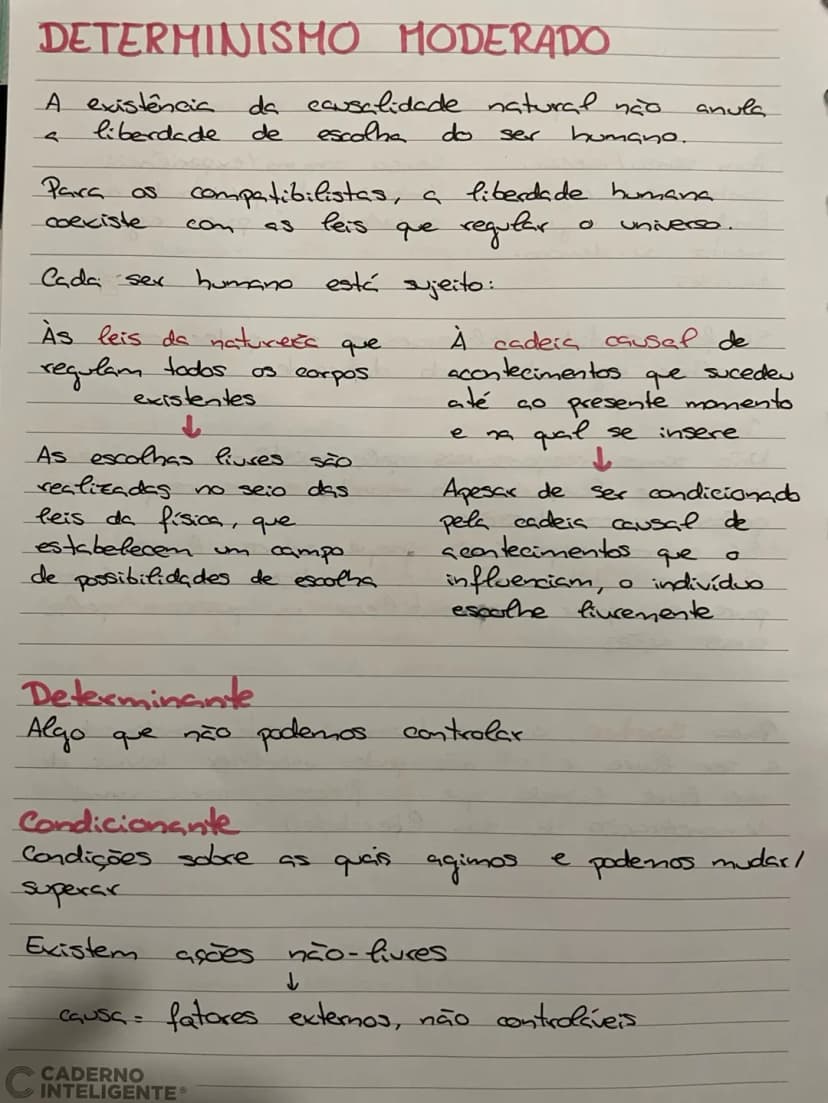 DETERMINISMO MODERADO
A existência da causalidade natural não anula
a liberdade de escolha do ser humano.
Para os compatibilistas, a liberdade humana
coexiste com as leis que regular o universo.
Cada ser humano está sujeito:
Às leis da natureza que
regulam todos os corpos
existentes
↓
As escolhas livres são
realizadas no seio das
leis da física, que
estabelecem um campo
de possibilidades de escolha
À cadeia causal de
acontecimentos que sucedeu
até ao presente momento
e na qual se insere
↓
Apesar de ser condicionado
pela cadeia causal de
acontecimentos que o
influenciam, o indivíduo
escolhe livremente
Determinante
Algo que não podemos controlar
Condicionante
Condições sobre as quais agimos e podemos mudar/
superar
Existem ações não-livres
↓
causa = fatores externos, não controláveis
CADERNO
INTELIGENTE®